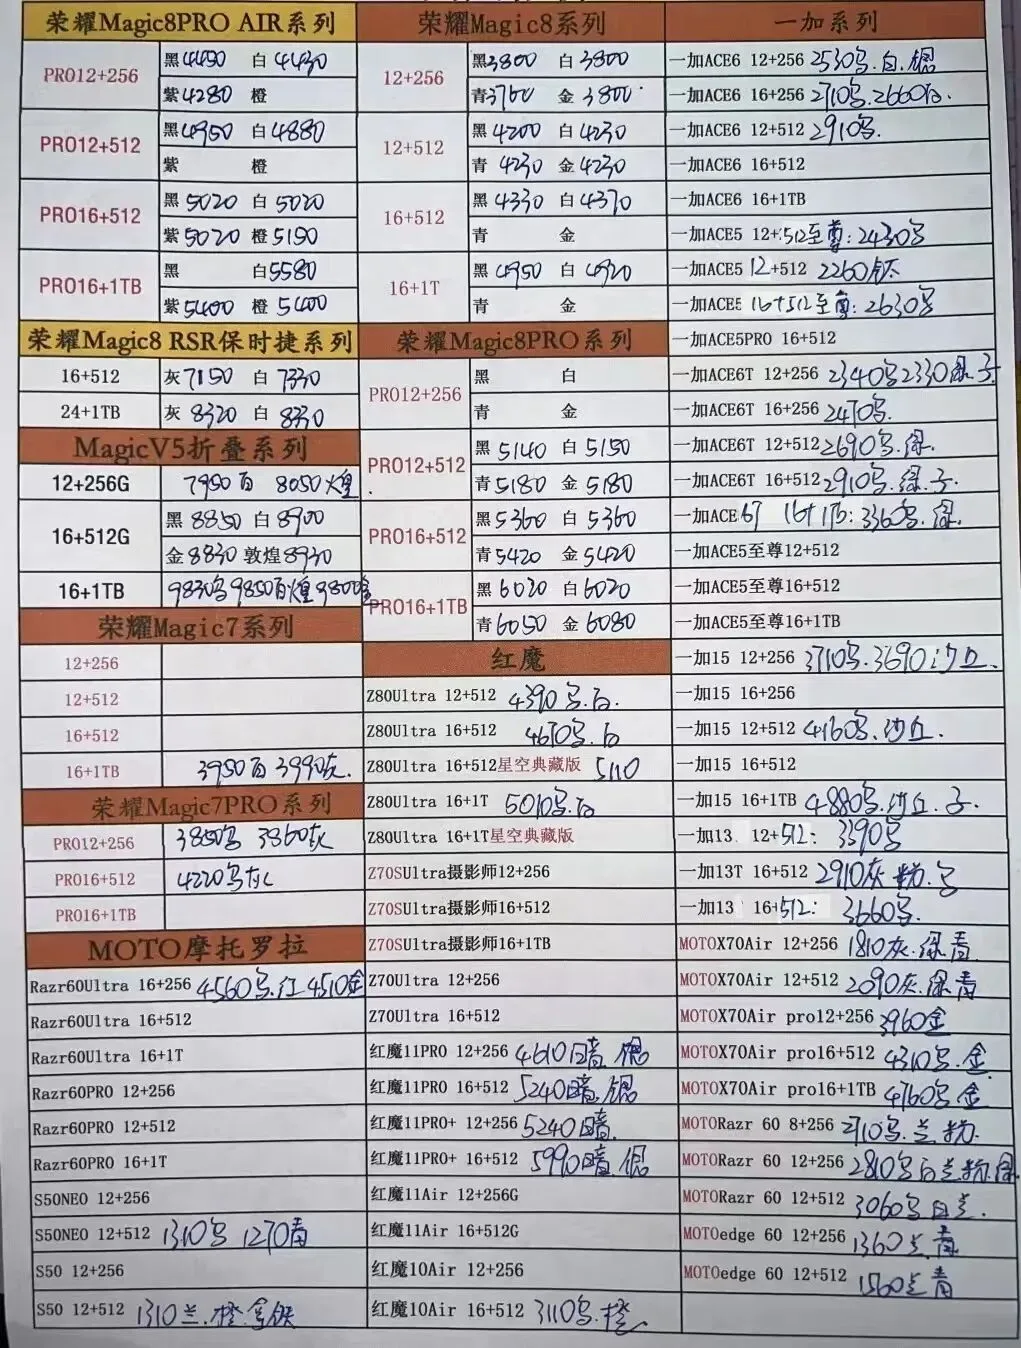 荣耀Magic8PRO AIR系列
PRO12+256 黑4490 白4430
紫4280 橙
PRO12+512 黑4950 白4880
紫 橙
PRO16+512 黑5020 白5020
紫5020 橙5190
PRO16+1TB 黑 白5580
紫5400 橙5400
荣耀Magic8 RSR保时捷系列
16+512 灰7150 白7330
24+1TB 灰8320 白8330
MagicV5折叠系列
12+256G 7950白 8050煌
16+512G 黑8850 白8900
金8830 敦煌8930
16+1TB 9830乌 9850白煌
荣耀Magic7系列
12+256
12+512
16+512
16+1TB 3950白 3990灰.
荣耀Magic7PRO系列
PRO12+256 3850乌 3860灰
PRO16+512 4220乌灰
PRO16+1TB
MOTO摩托罗拉
Razr60Ultra 16+256 4560乌.红 4510金
Razr60Ultra 16+512
Razr60Ultra 16+1T
Razr60PRO 12+256
Razr60PRO 12+512
Razr60PRO 16+1T
S50NEO 12+256
S50NEO 12+512 1310乌 1270青
S50 12+256
S50 12+512 1310兰.橙.
荣耀Magic8系列
12+256 黑3800 白3800
青3760 金3800
12+512 黑4200 白4230
青4230 金4230
16+512 黑4330 白4370
青 金
16+1T 黑4950 白4920
青 金
荣耀Magic8PRO系列
PRO12+256 黑 白
青 金
PRO12+512 黑5140 白5150
青5180 金5180
PRO16+512 黑5360 白5360
青5420 金5420
PRO16+1TB 黑6020 白6020
青6050 金6080
红魔
Z80Ultra 12+512 4390乌.白.
Z80Ultra 16+512 4670乌.白
Z80Ultra 16+512星空典藏版 5110
Z80Ultra 16+1T 5010乌.白
Z80Ultra 16+1T星空典藏版
Z70SUltra摄影师12+256
Z70SUltra摄影师16+512
Z70SUltra摄影师16+1TB
Z70Ultra 12+256
Z70Ultra 16+512
红魔11PRO 12+256 4610暗.银
红魔11PRO 16+512 5240暗.银
红魔11PRO+ 12+256 5240暗.
红魔11PRO+ 16+512 5990暗.银
红魔11Air 12+256G
红魔11Air 16+512G
红魔10Air 12+256
红魔10Air 16+512 3110乌.橙.
一加系列
一加ACE6 12+256 2530乌.白.银
一加ACE6 16+256 2710乌.2660白.
一加ACE6 12+512 2910乌.
一加ACE6 16+512
一加ACE6 16+1TB
一加ACE5 12+512至尊:2430乌
一加ACE5 12+512 2260钛
一加ACE5 16+512至尊:2630乌
一加ACE5PRO 16+512
一加ACE6T 12+256 2340乌2330绿.子
一加ACE6T 16+256 2470乌.
一加ACE6T 12+512 2690乌.绿.
一加ACE6T 16+512 2910乌.绿.子.
一加ACE6T 16+1TB:3360乌.绿.
一加ACE5至尊12+512
一加ACE5至尊16+512
一加ACE5至尊16+1TB
一加15 12+256 3710乌.3690沙丘.
一加15 16+256
一加15 12+512 4160乌.沙丘.
一加15 16+512
一加15 16+1TB 4880乌.沙丘.子.
一加13 12+512: 3390乌
一加13T 16+512 2910灰.粉.乌
一加13 16+512: 3660乌.
MOTOX70Air 12+256 1810灰.绿青
MOTOX70Air 12+512 2090灰.绿青
MOTOX70Air pro12+256 3960金
MOTOX70Air pro16+512 4310乌.金
MOTOX70Air pro16+1TB 4760乌.金
MOTORazr 60 8+256 2710乌.兰.粉.
MOTORazr 60 12+256 2810乌白兰粉.绿
MOTORazr 60 12+512 3060乌白兰.
MOTOedge 60 12+256 1360兰.青
MOTOedge 60 12+512 1560兰青